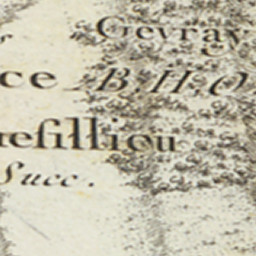 Gevray
ce B.H.O.
tefilliou
Succ.